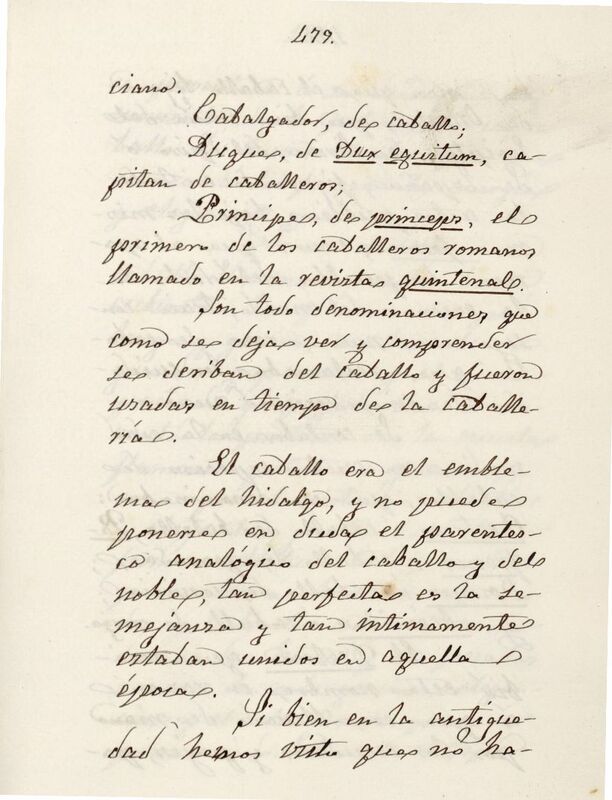 479.
ciano.
Cabalgador, de caballo;
Duque, de Dux equitum, ca-
pitan de caballeros;
Principe, de princeps, el
primero de los caballeros romanos
llamado en la revista quintenal.
Son todo denominaciones que
como se deja ver y comprender
se deriban del caballo y fueron
usadas en tiempo de la caballe-
ría.
El caballo era el emble-
ma del hidalgo, y no puede
ponerse en duda el parentes-
co analógico del caballo y del
noble, tan perfecta es la se-
mejanza y tan íntimamente
estaban unidos en aquella
época.
Si bien en la antigue-
dad hemos visto que no ha-